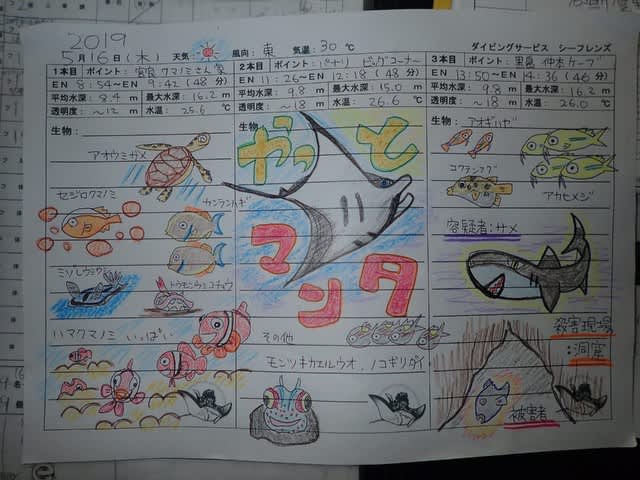 2019
5月16日(木) 天気: 風向: 東 気温: 30℃
ダイビングサービス シーフレンズ
1本目 ポイント: クマノミさん家
EN 8:54〜EN 9:42 (48分)
平均水深: 8.4 m 最大水深: 16.2 m
透明度: 〜12 m 水温: 25.6 ℃
生物:
アオウミガメ
セジロクマノミ
カンランハギ
ミゾレウミウシ
トウモンウミコチョウ
ハマクマノミ いっぱい
2本目 ポイント: パナリ ビッグコーナー
EN 11:26〜EN 12:18 (48分)
平均水深: 9.8 m 最大水深: 15.0 m
透明度: 〜18 m 水温: 26.6 ℃
生物:
やっと
マンタ
その他
モンツキカエルウオ、ノコギリダイ
3本目 ポイント: 黒島 仲本ケーブ
EN 13:50〜EN 14:36 (46分)
平均水深: 9.8 m 最大水深: 16.2 m
透明度: 〜18 m 水温: 26.0 ℃
生物: アオギハゼ
コクテンフグ
アカヒメジ
容疑者:サメ
殺害現場
:洞窟
被害者